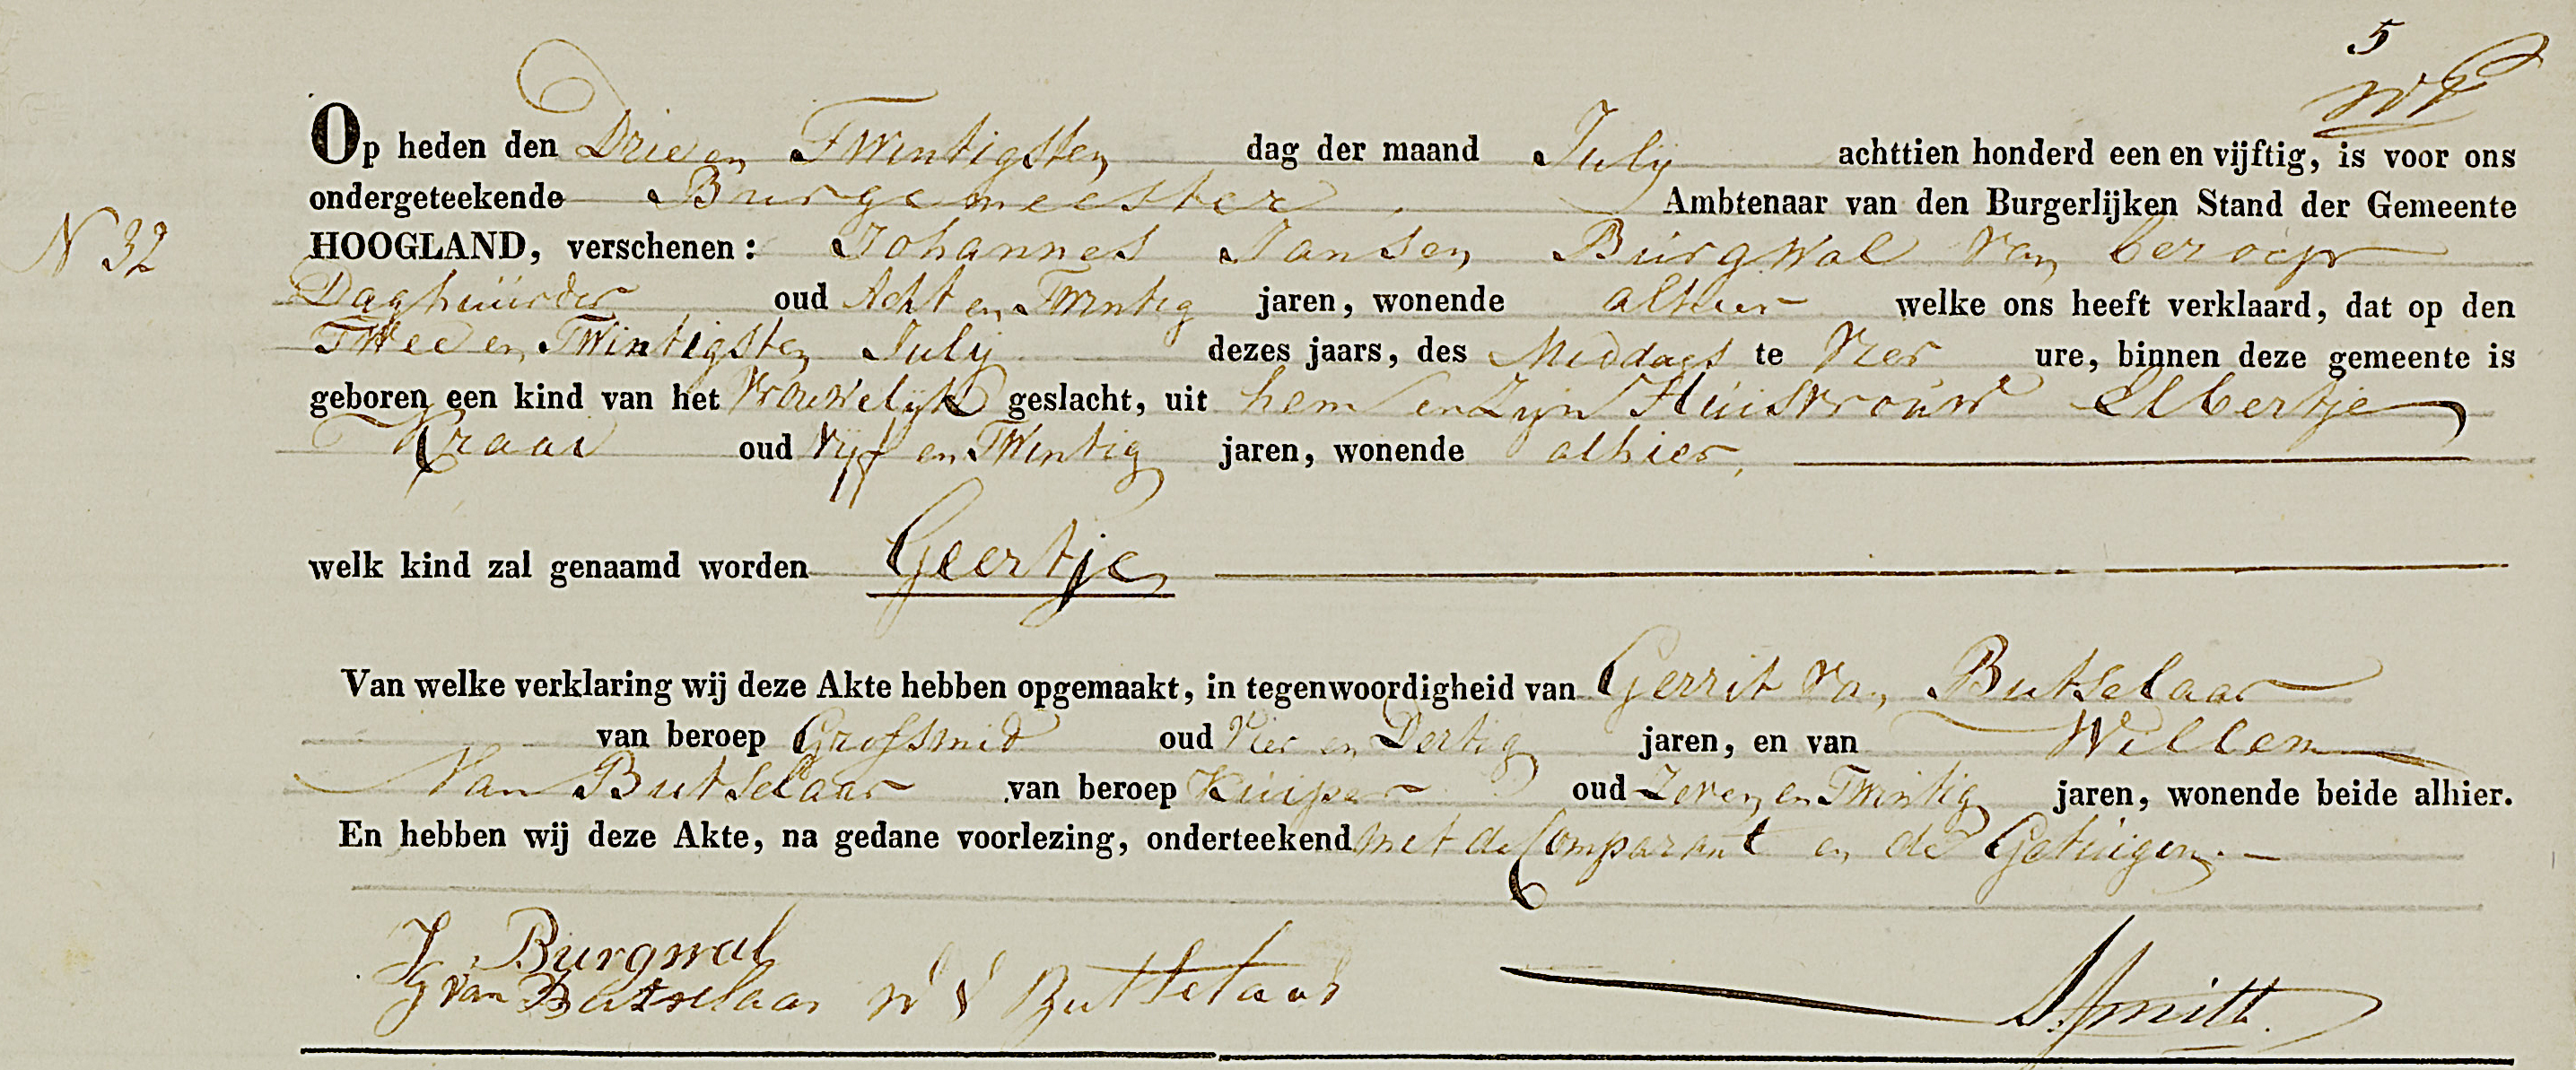 5
Op heden den Drie en Twintigsten dag der maand July achttien honderd een en vijftig, is voor ons
ondergeteekende Burgemeester Ambtenaar van den Burgerlijken Stand der Gemeente
N 32
HOOGLAND, verschenen: Johannes Jansen Burgwal van beroep
Daghuurder oud Acht en Twintig jaren, wonende alhier welke ons heeft verklaard, dat op den
Twee en Twintigsten July dezes jaars, des Middags te Vier ure, binnen deze gemeente is
geboren een kind van het Vrouwelijk geslacht, uit hem en Zijn Huisvrouw Elbertje
Kraai oud Vijf en Twintig jaren, wonende alhier,
welk kind zal genaamd worden Geertje
Van welke verklaring wij deze Akte hebben opgemaakt, in tegenwoordigheid van Gerrit Van Butselaar
van beroep Grofsmid oud Vier en Dertig jaren, en van Willem
Van Butselaar van beroep Kuiper oud Zeven en Twintig jaren, wonende beide alhier.
En hebben wij deze Akte, na gedane voorlezing, onderteekend met de Comparant en de Getuigen.
J Burgwal
G van Butselaar W V Buttelaar Smitt.